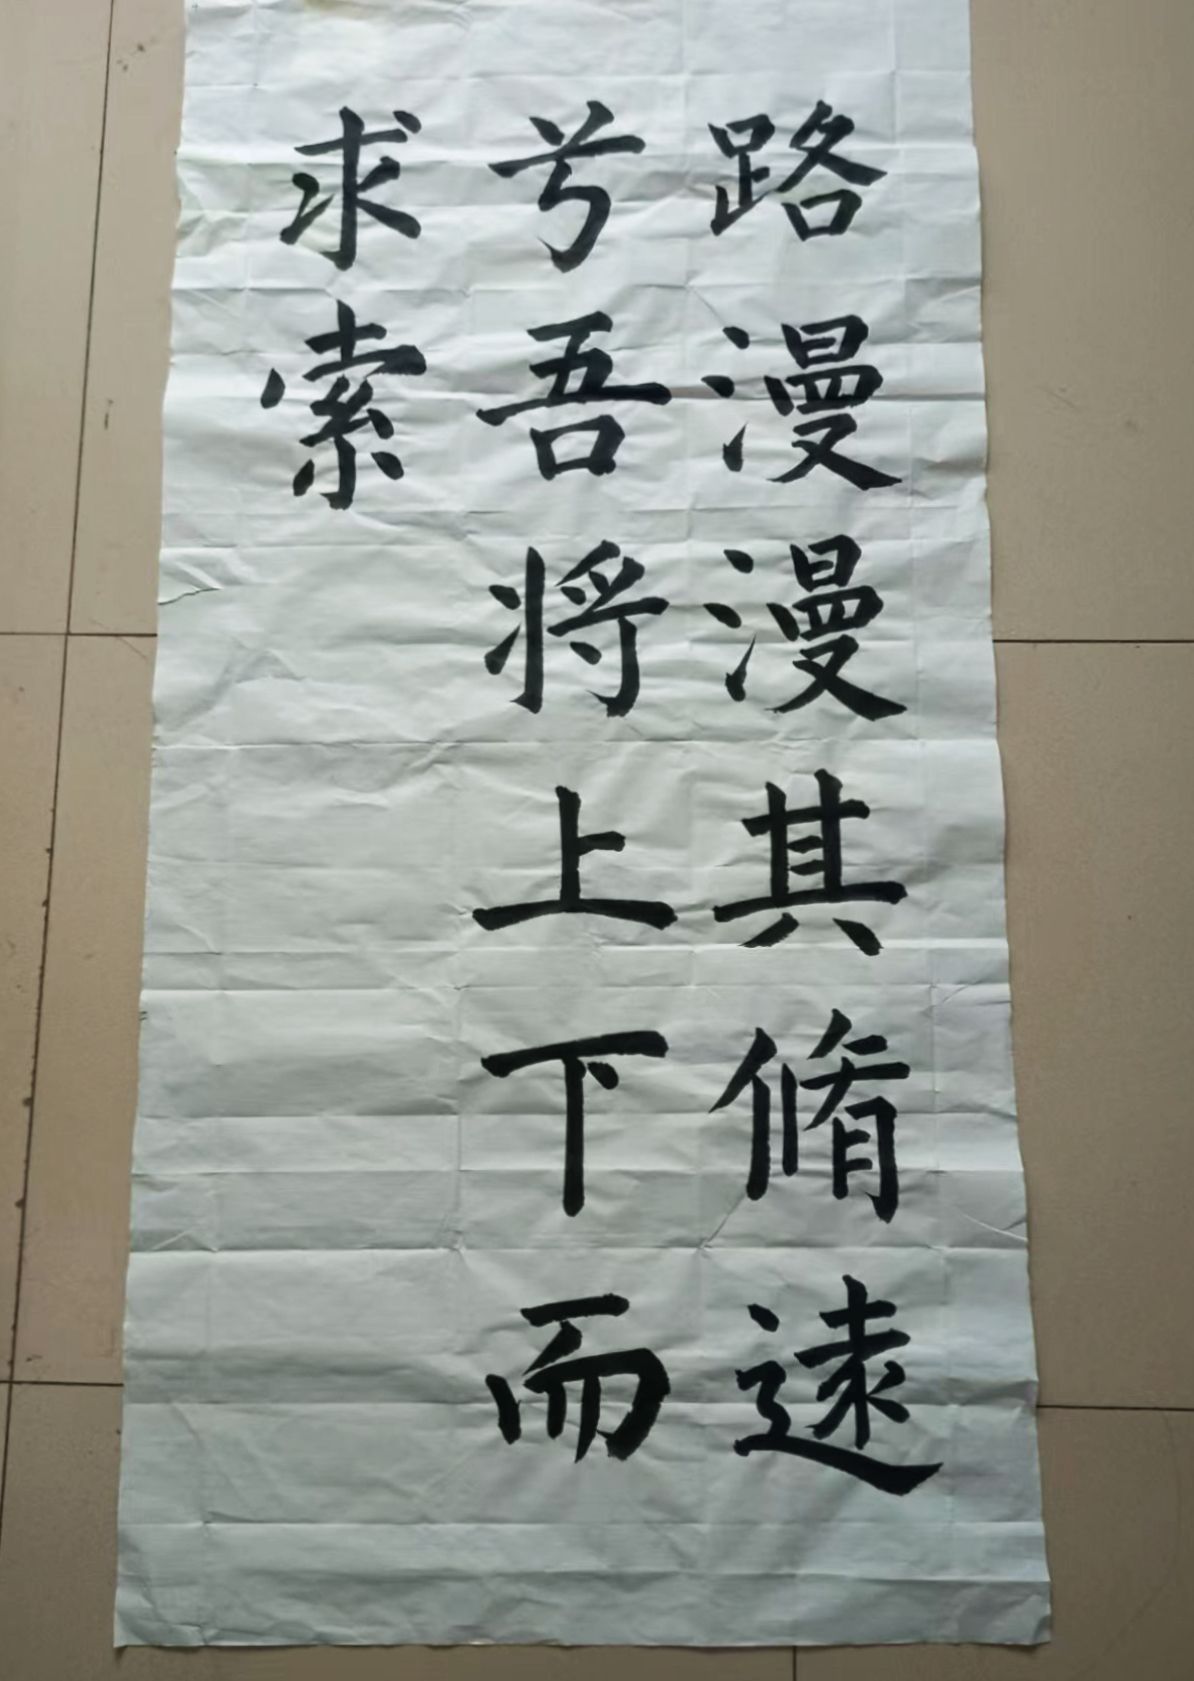 路漫漫其脩遠
兮吾将上下而
求索